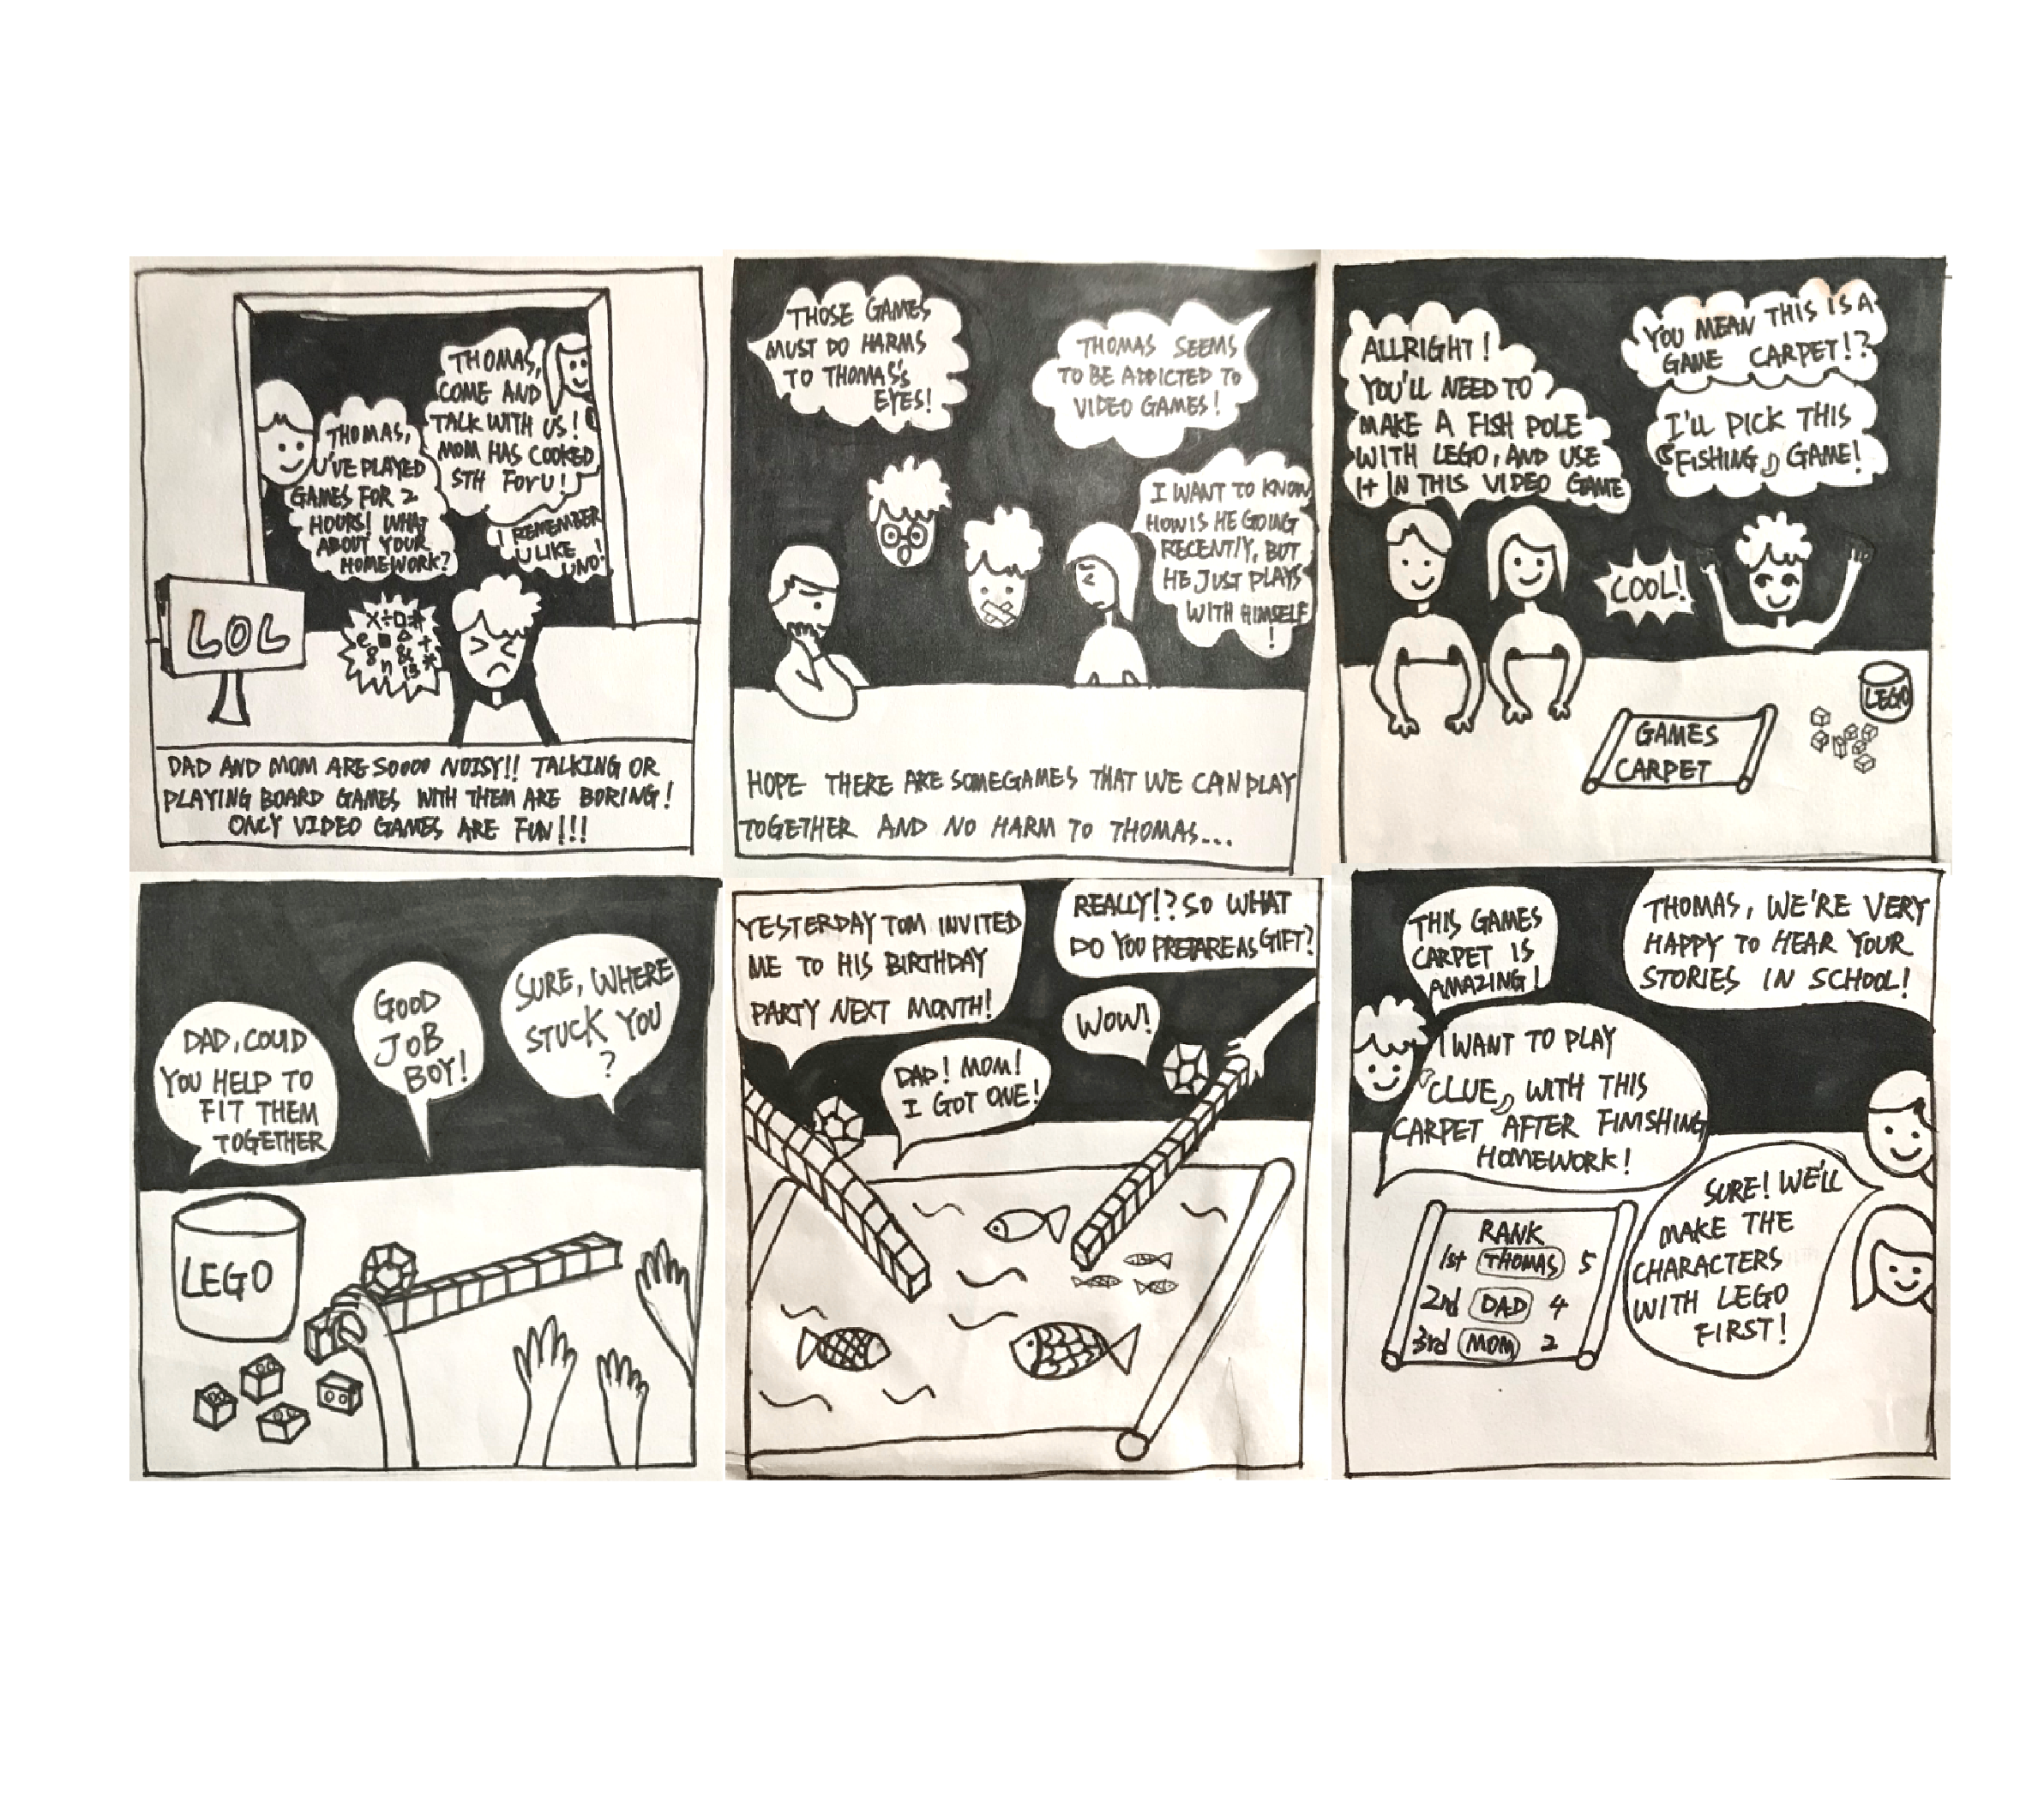 THOMAS,
U'VE PLAYED
GAMES FOR 2
HOURS! WHAT
ABOUT YOUR
HOMEWORK?
THOMAS,
COME AND
TALK WITH US!
MOM HAS COOKED
STH FOR U!
I REMEMBER
U LIKE
UNO!
LOL
X÷□#
DAD AND MOM ARE SOOOO NOISY!! TALKING OR
PLAYING BOARD GAMES WITH THEM ARE BORING!
ONLY VIDEO GAMES ARE FUN!!!
THOSE GAMES
MUST DO HARMS
TO THOMAS'S
EYES!
THOMAS SEEMS
TO BE ADDICTED TO
VIDEO GAMES!
I WANT TO KNOW
HOW IS HE GOING
RECENTLY, BUT
HE JUST PLAYS
WITH HIMSELF
!
HOPE THERE ARE SOMEGAMES THAT WE CAN PLAY
TOGETHER AND NO HARM TO THOMAS...
ALLRIGHT!
YOU'LL NEED TO
MAKE A FISH POLE
WITH LEGO, AND USE
It IN THIS VIDEO GAME
YOU MEAN THIS IS A
GAME CARPET!?
I'LL PICK THIS
「FISHING」 GAME!
COOL!
LEGO
GAMES
CARPET
DAD, COULD
YOU HELP TO
FIT THEM
TOGETHER
GOOD
JOB
BOY!
SURE, WHERE
STUCK YOU
?
LEGO
YESTERDAY TOM INVITED
ME TO HIS BIRTHDAY
PARTY NEXT MONTH!
REALLY!? SO WHAT
DO YOU PREPARE AS GIFT?
WOW!
DAD! MOM!
I GOT ONE!
THIS GAMES
CARPET IS
AMAZING!
THOMAS, WE'RE VERY
HAPPY TO HEAR YOUR
STORIES IN SCHOOL!
I WANT TO PLAY
「CLUE」 WITH THIS
CARPET AFTER FINISHING
HOMEWORK!
SURE! WE'LL
MAKE THE
CHARACTERS
WITH LEGO
FIRST!
RANK
1st THOMAS 5
2nd DAD 4
3rd MOM 2